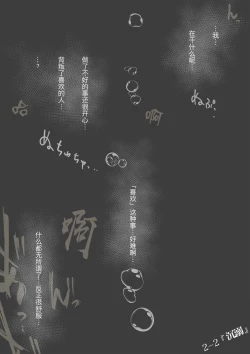 …我…
在干什么呢…
ん
ぬぷ
做了不好的事还很开心…
背叛了喜欢的人…
…。
哈
啊
ぬちゅちゅ…
「喜欢」这种事…好难啊…
啊
什么都无所谓了…反正很舒服…
2-2『沉溺』